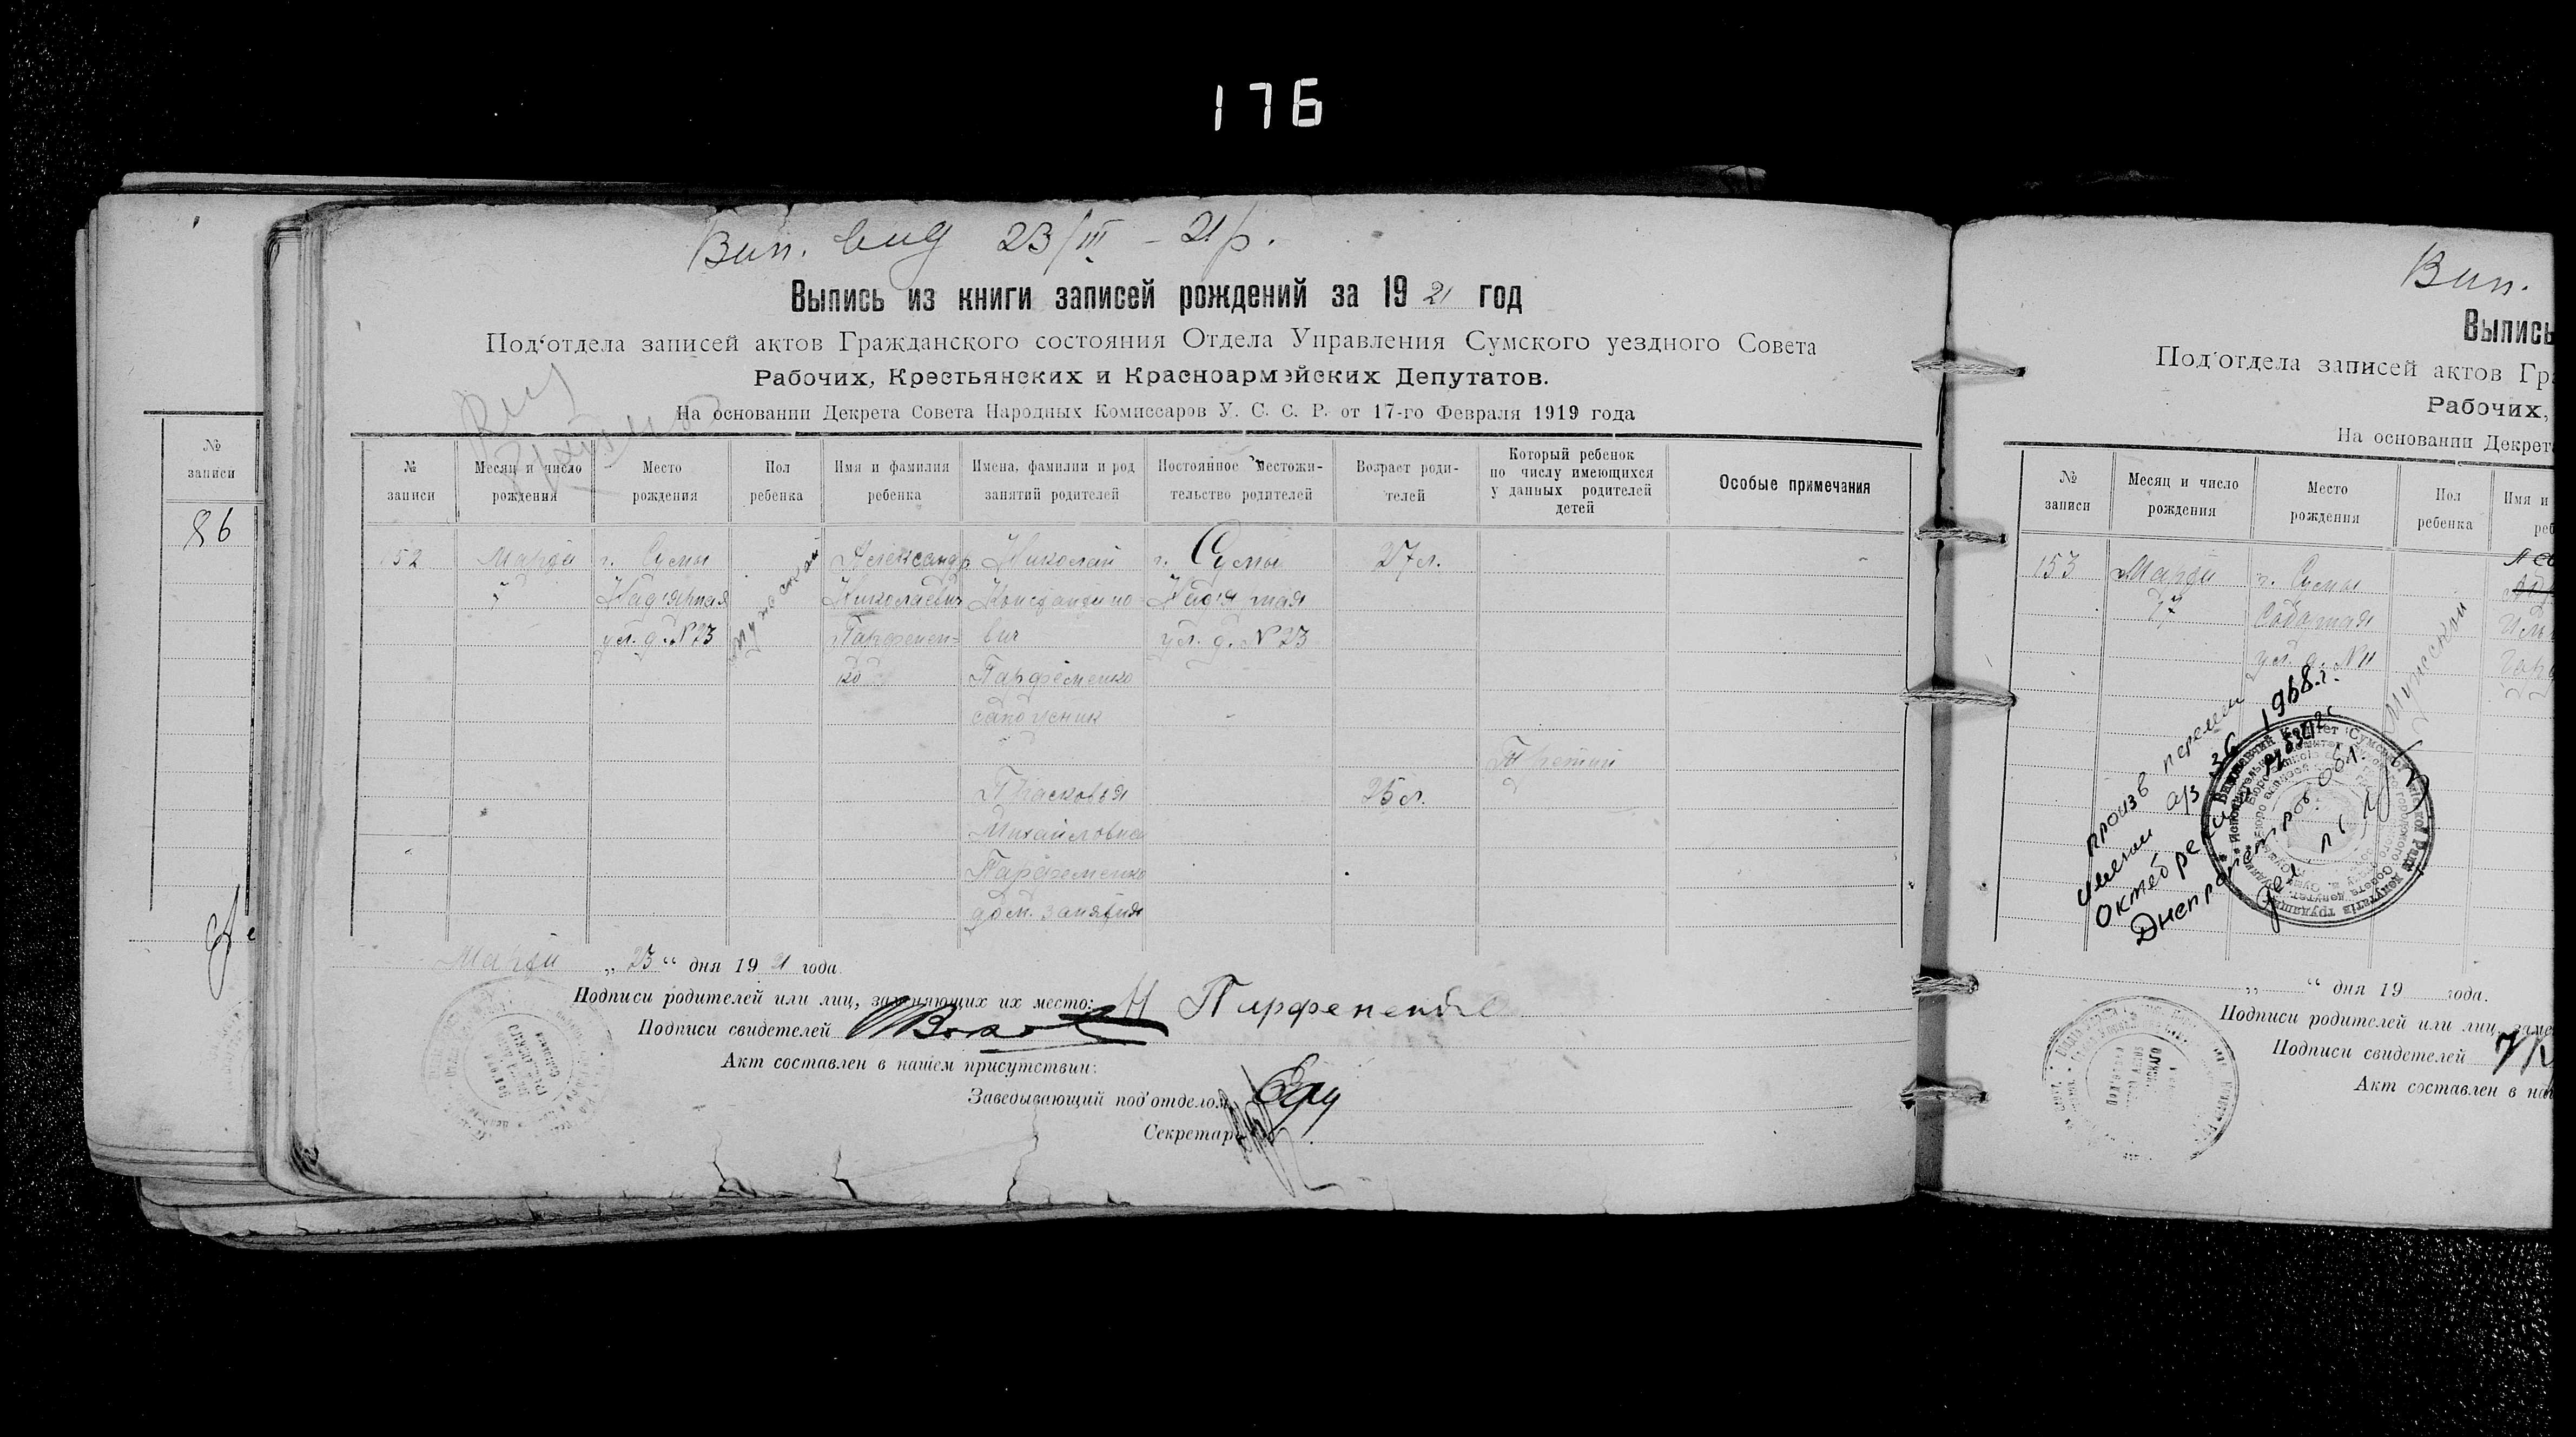 176
№
записи
86
Вип. вид 23/III - 21 р.
Выпись из книги записей рождений за 19 21 год
Под'отдела записей актов Гражданского состояния Отдела Управления Сумского уездного Совета
Рабочих, Крестьянских и Красноармэйских Депутатов.
На основании Декрета Совета Народных Комиссаров У. С. С. Р. от 17-го Февраля 1919 года
№ записи
Месяц и число рождения
Место рождения
Пол ребенка
Имя и фамилия ребенка
Имена, фамилии и род занятий родителей
Постоянное местожи-тельство родителей
Возраст роди-телей
Который ребенок по числу имеющихся у данных родителей детей
Особые примечания
152
Марта
г. Сумы
ул. д. № 23
мужской
Александр
Николаевич
Парфемен=
ко
Николай
Константино-
вич
Парфеменко
сапожник
Прасковья
Михайловна
Парфеменко
дом. занятия
г. Сумы
ул. д. № 23
27 л.
25 л.
Третий
Марта „ 23 “ дня 19 21 года.
Подписи родителей или лиц, заменяющих их место: Н Парфененко
Подписи свидетелей
Акт составлен в нашем присутствии:
Заведывающий под'отделом
Секретарь
Вип.
Выпись
Под'отдела записей актов Гр
Рабочих,
На основании Декрет
№ записи
Месяц и число рождения
Место рождения
Пол ребенка
Имя и
реб
153
Марта
г. Сумы
Соборная
ул. д. № 11
Мужской
произв перемен
имени а/з 36 1968 г.
Днепропетров. обл.
„ “ дня 19 года.
Подписи родителей или лиц, заме
Подписи свидетелей
Акт составлен в на